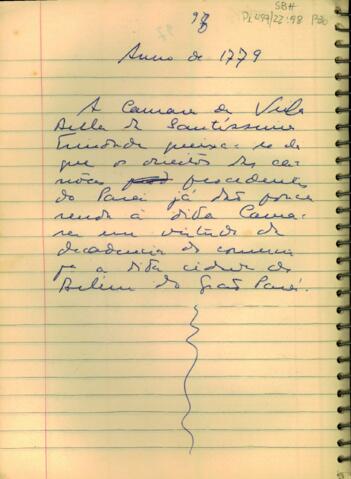 98
SBH
Pi 497/22-98 P20
Anno de 1779
A Camara da Villa
Bella da Santíssima
Trindade queixa-se de
que os direitos das ca-
nôas procedentes
do Pará já dão pouca
renda à dita Cama-
ra em virtude da
decadencia do commer-
a dita cidade de
Belem do Grão Pará.